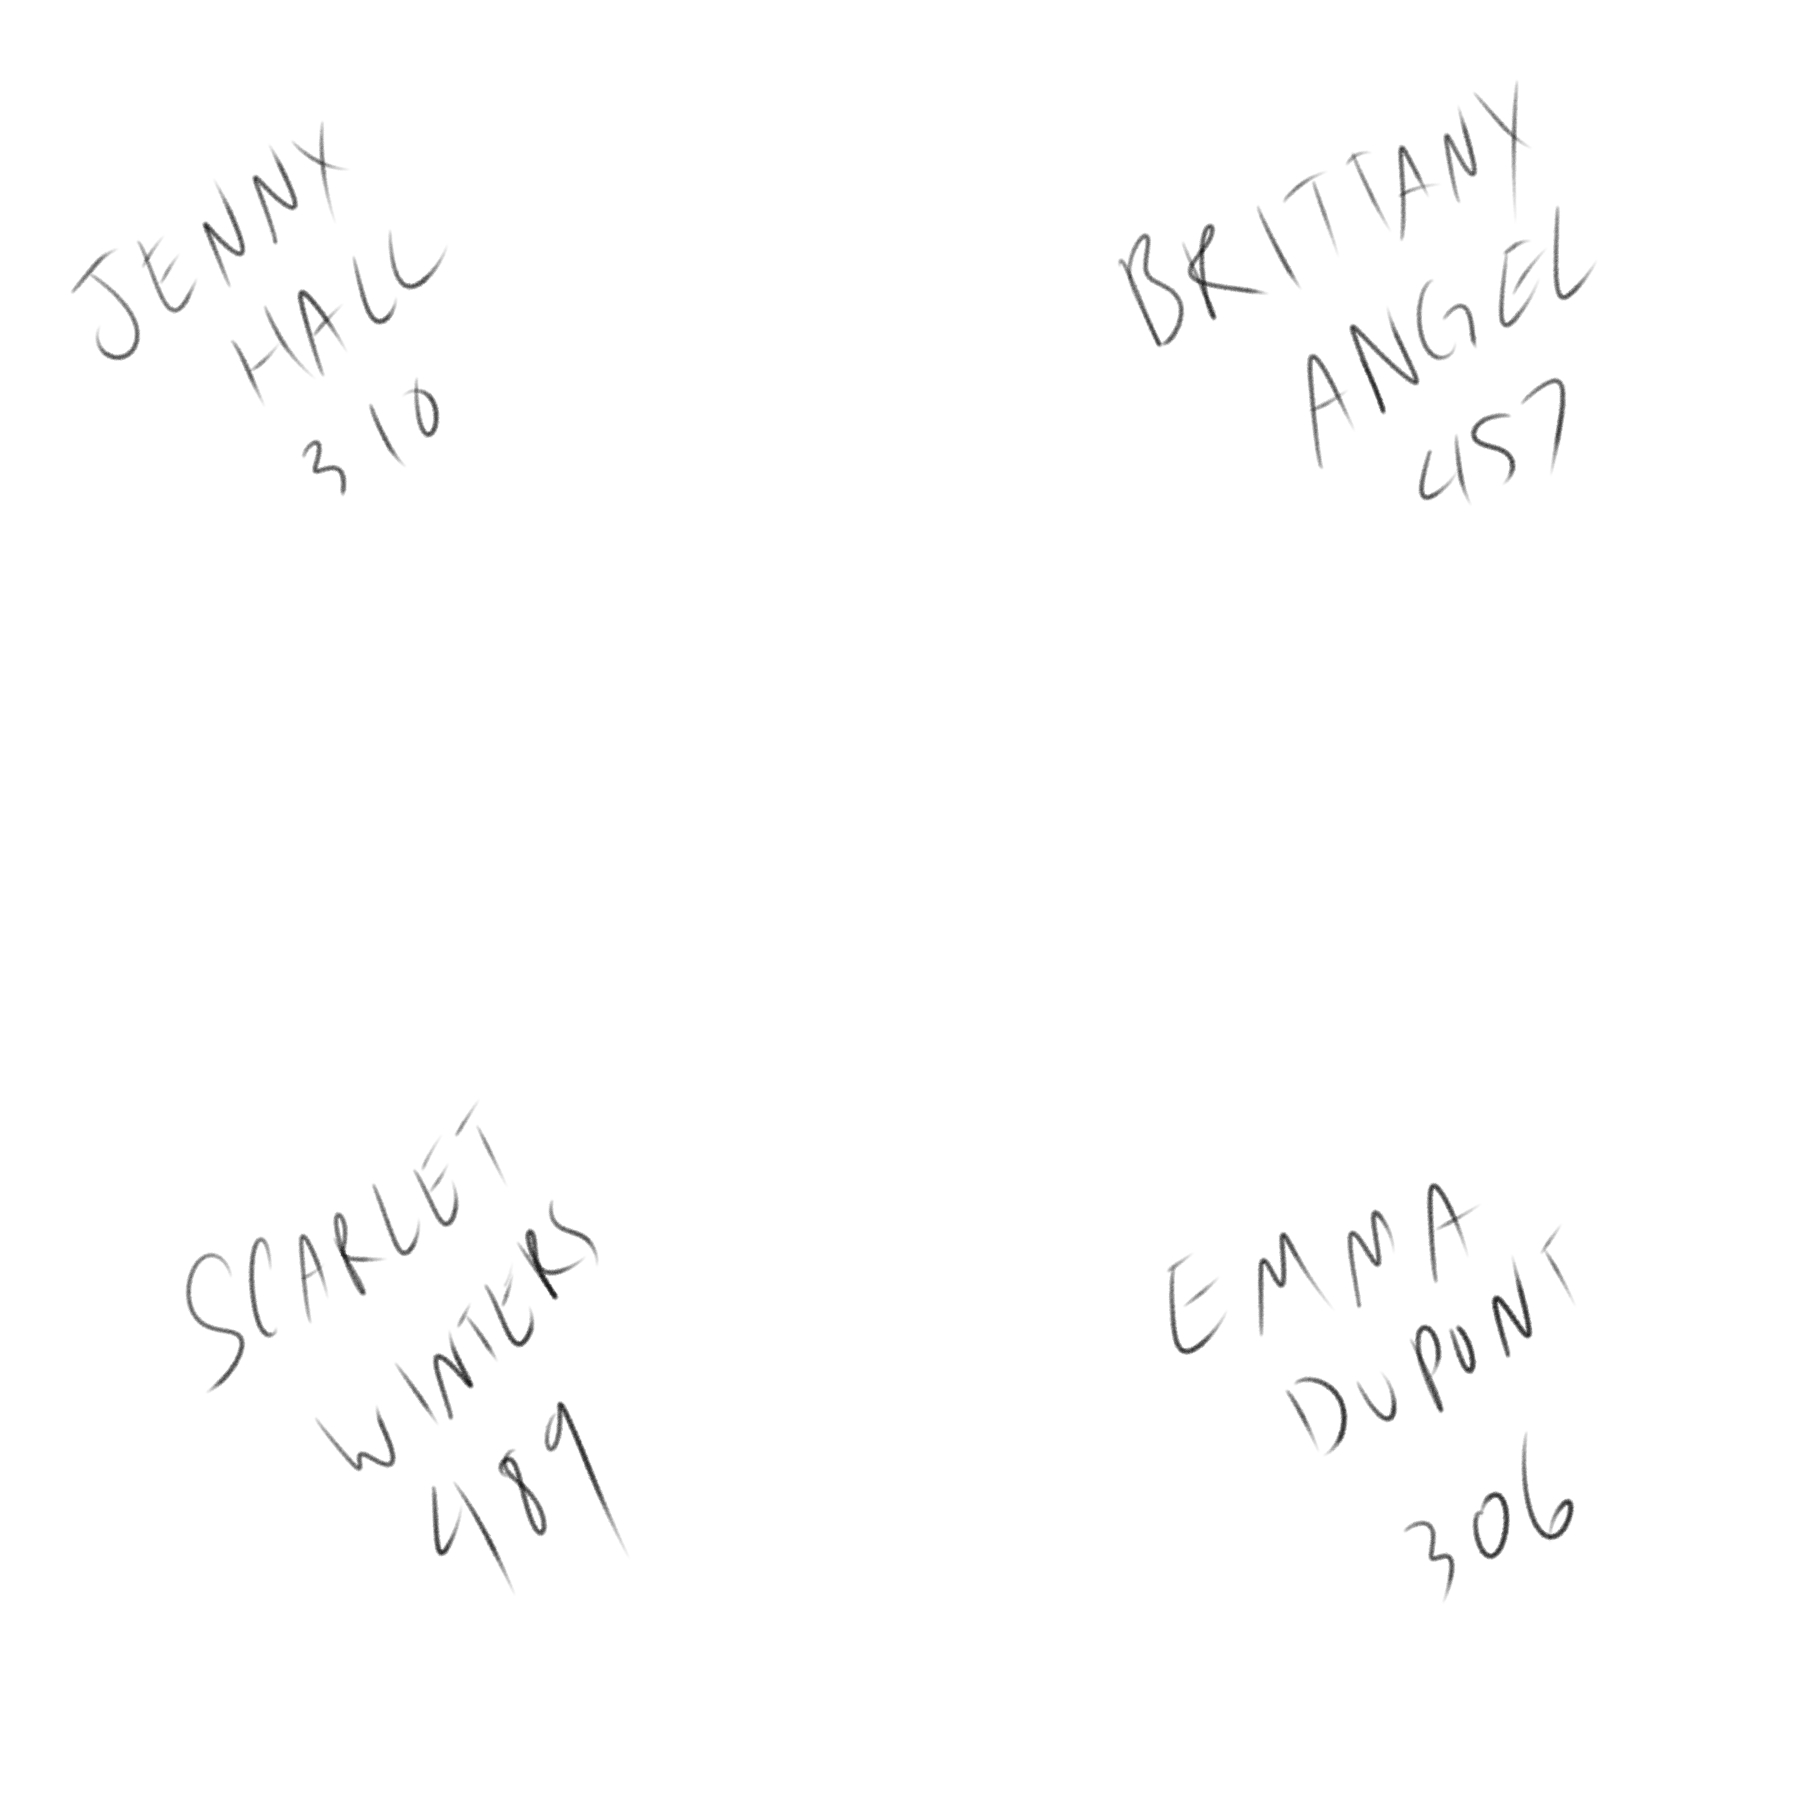 JENNY
HALL
310
BRITTANY
ANGEL
457
SCARLET
WINTERS
489
EMMA
DUPONT
306